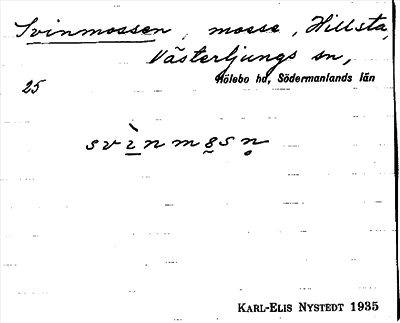 Svinmossen, mosse, Hillsta,
Västerljungs sn,
Hölebo hd, Södermanlands län
25
svı̀nmo̤sṇ
KARL-ELIS NYSTEDT 1935